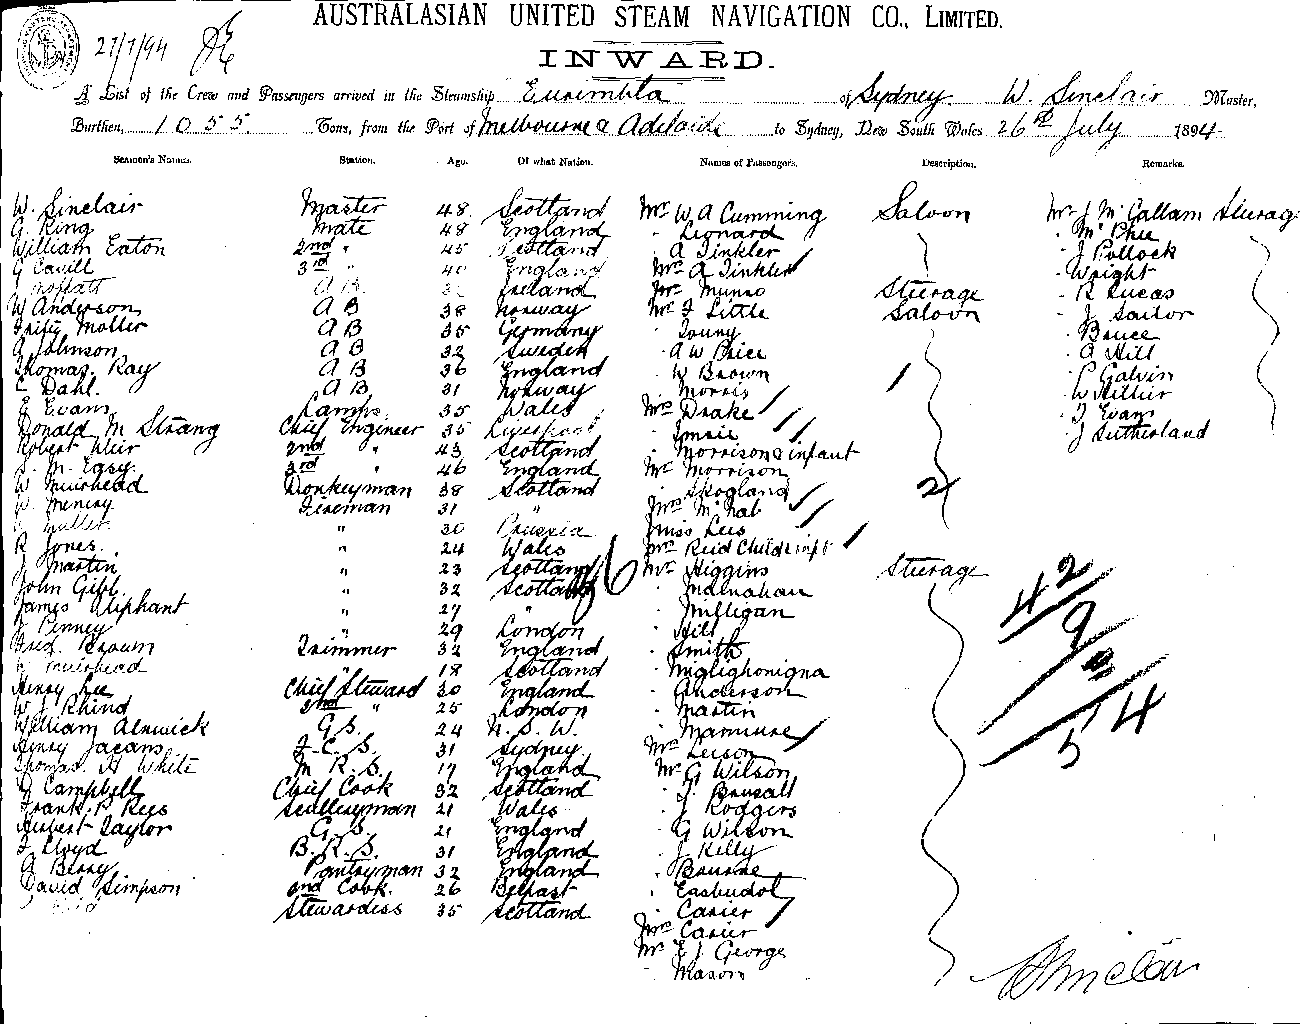 AUSTRALASIAN UNITED STEAM NAVIGATION CO., LIMITED.
27/7/94
INWARD.
A List of the Crew and Passengers arrived in the Steamship Eurimbla of Sydney W. Sinclair Master,
Burthen, 1055 Tons, from the Port of Melbourne & Adelaide to Sydney, New South Wales 26th July 1894
Seamen's Names. Station. Age. Of what Nation. Names of Passengers. Description. Remarks.
W. Sinclair Master 48 Scotland Mr W A Cumming Saloon Mr J McCallam Sturage
G. King Mate 48 England " Leonard " McPhee
William Eaton 2nd " 45 Scotland A Tinkler " J Pollock
G Cavill 3rd " 40 England Mrs A Tinkler " Wright
A B Ireland Mr Munro Sturage " R Lucas
W Anderson A B 38 Norway Mr F Little Saloon " J Sailor
Moller A B 35 Germany Young " Bruce
A Johnson A B 32 Sweden " A W Price " A Hill
Thomas Ray A B 36 England " W Brown " P Galvin
C Dahl. A B 31 Norway " Morris
E Evans Lamps 35 Wales Mrs Drake " J Evans
Donald M Strang Chief Engineer 35 Liverpool " Imrie " J Sutherland
Robert Weir 2nd " 43 Scotland " Morrison & infant
3rd " 46 England Mr Morrison
W Muirhead Donkeyman 38 Scotland " Skogland 2
Fireman 31 " Mrs McNab
" 30 Prussia Miss Lees
R Jones. " 24 Wales Mrs Reid Child & inft
J Martin " 23 Scotland 16 Mr Higgins Sturage 42
John Gibb. " 32 Scotland " Malnahan
James Oliphant " 27 " " Milligan 9
J Penney " 29 London " Hill
Fred. Brown Trimmer 32 England " Smith 3
Muirhead " 18 Scotland " Miglighonigna
Henry Lee Chief Steward 30 England " Anderson
W J Rhind 2nd " 25 London " Martin 54
William Alnwick G.S. 24 N.S.W.
Henry Jacans F.C.S. 31 Sydney Mrs Leison
Thomas H White M R.S. 17 England Mr G Wilson
D Campbell Chief Cook 32 Scotland " J Brusall
Frank P Rees Sculleryman 21 Wales " J Rodgers
Herbert Taylor G.S. 21 England " G Wilson
J Lloyd B.R.S. 31 England " J Kelly
A Berry Pantryman 32 England " Bourne
David Simpson 2nd Cook. 26 Belfast
Stewardess 35 Scotland " Carier
Mrs Carier
Mr E J George
" Mason
W Sinclair